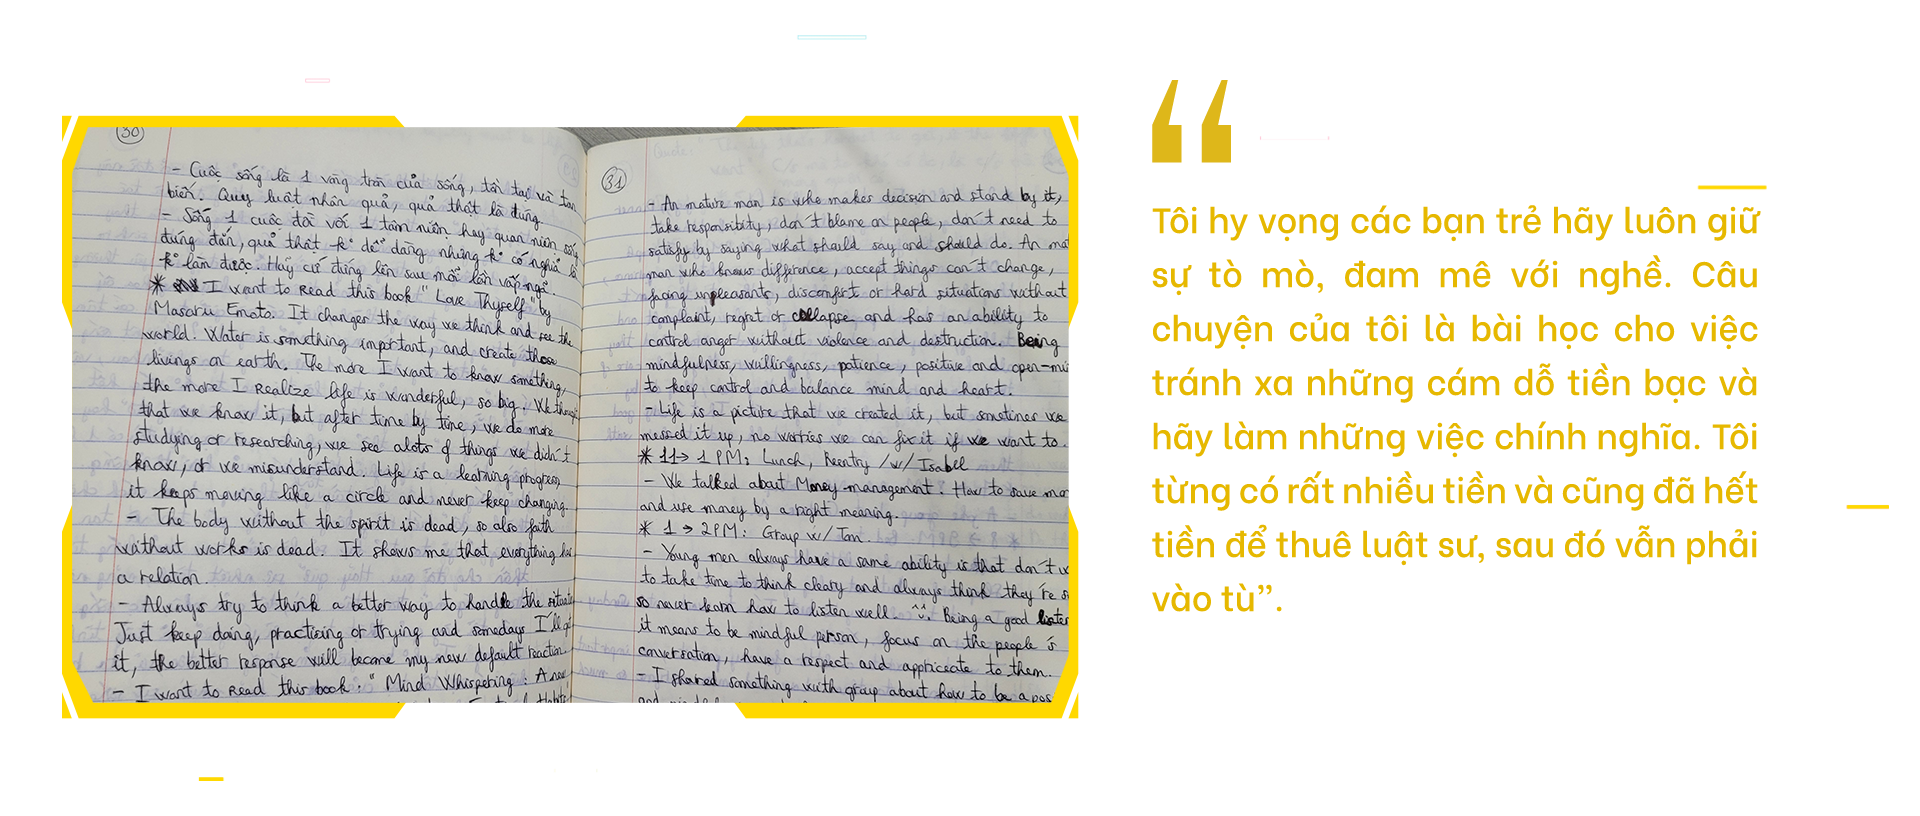 30
- Cuộc sống là 1 vòng tròn của sống, tồn tại và tan
biến. Quy luật nhân quả, quả thật là đúng.
- Sống 1 cuộc đời với 1 tâm niệm hay quan niệm sống
đúng đắn, quả thật k° dễ dàng nhưng k° có nghĩa là
k° làm được. Hãy cứ đứng lên sau mỗi lần vấp ngã.
* I want to Read this book "Love Thyself" by
Masaru Emoto. It changes the way we think and see the
world. Water is something important, and create those
livings on earth. The more I want to know something,
the more I Realize life is wonderful, so big. We thought
that we know it, but after time by time, we do more
studying or researching, we see alots of things we didn't
know, or we misunderstand. Life is a learning progress,
it keeps moving like a circle and never keep changing.
- The body without the spirit is dead, so also faith
without works is dead. It shows me that everything has
a relation.
- Always try to think a better way to handle the situation
Just keep doing, practising or trying and somedays I'll get
it, the better response will become my new default reaction.
- I want to Read this book: "Mind Whispering: A new
31
- An mature man is who makes decision and stand by it,
take responsibility, don't blame on people, don't need to
satisfy by saying what should say and should do. An mat
man who knows difference, accept things can't change,
facing unpleasants, discomfort or hard situations without
complaint, regret or collapse and has an ability to
control anger without violence and destruction. Being
mindfulness, willingness, patience, positive and open-mi
to keep control and balance mind and heart.
- Life is a picture that we created it, but sometimes we
messed it up, no worries we can fix it if we want to.
* 11→ 1 PM: Lunch, Reentry /w/ Isabel
- We talked about Money management. How to save mo
and use money by a right meaning.
* 1 → 2PM: Group w/ Tom.
- Young men always have a same ability is that don't w
to take time to think cleary and always think they're s
so never learn how to listen well. Being a good listen
it means to be mindful person, focus on the people's
conversation, have a respect and appriceate to them.
- I shared something with group about how to be a pos
“
Tôi hy vọng các bạn trẻ hãy luôn giữ
sự tò mò, đam mê với nghề. Câu
chuyện của tôi là bài học cho việc
tránh xa những cám dỗ tiền bạc và
hãy làm những việc chính nghĩa. Tôi
từng có rất nhiều tiền và cũng đã hết
tiền để thuê luật sư, sau đó vẫn phải
vào tù”.